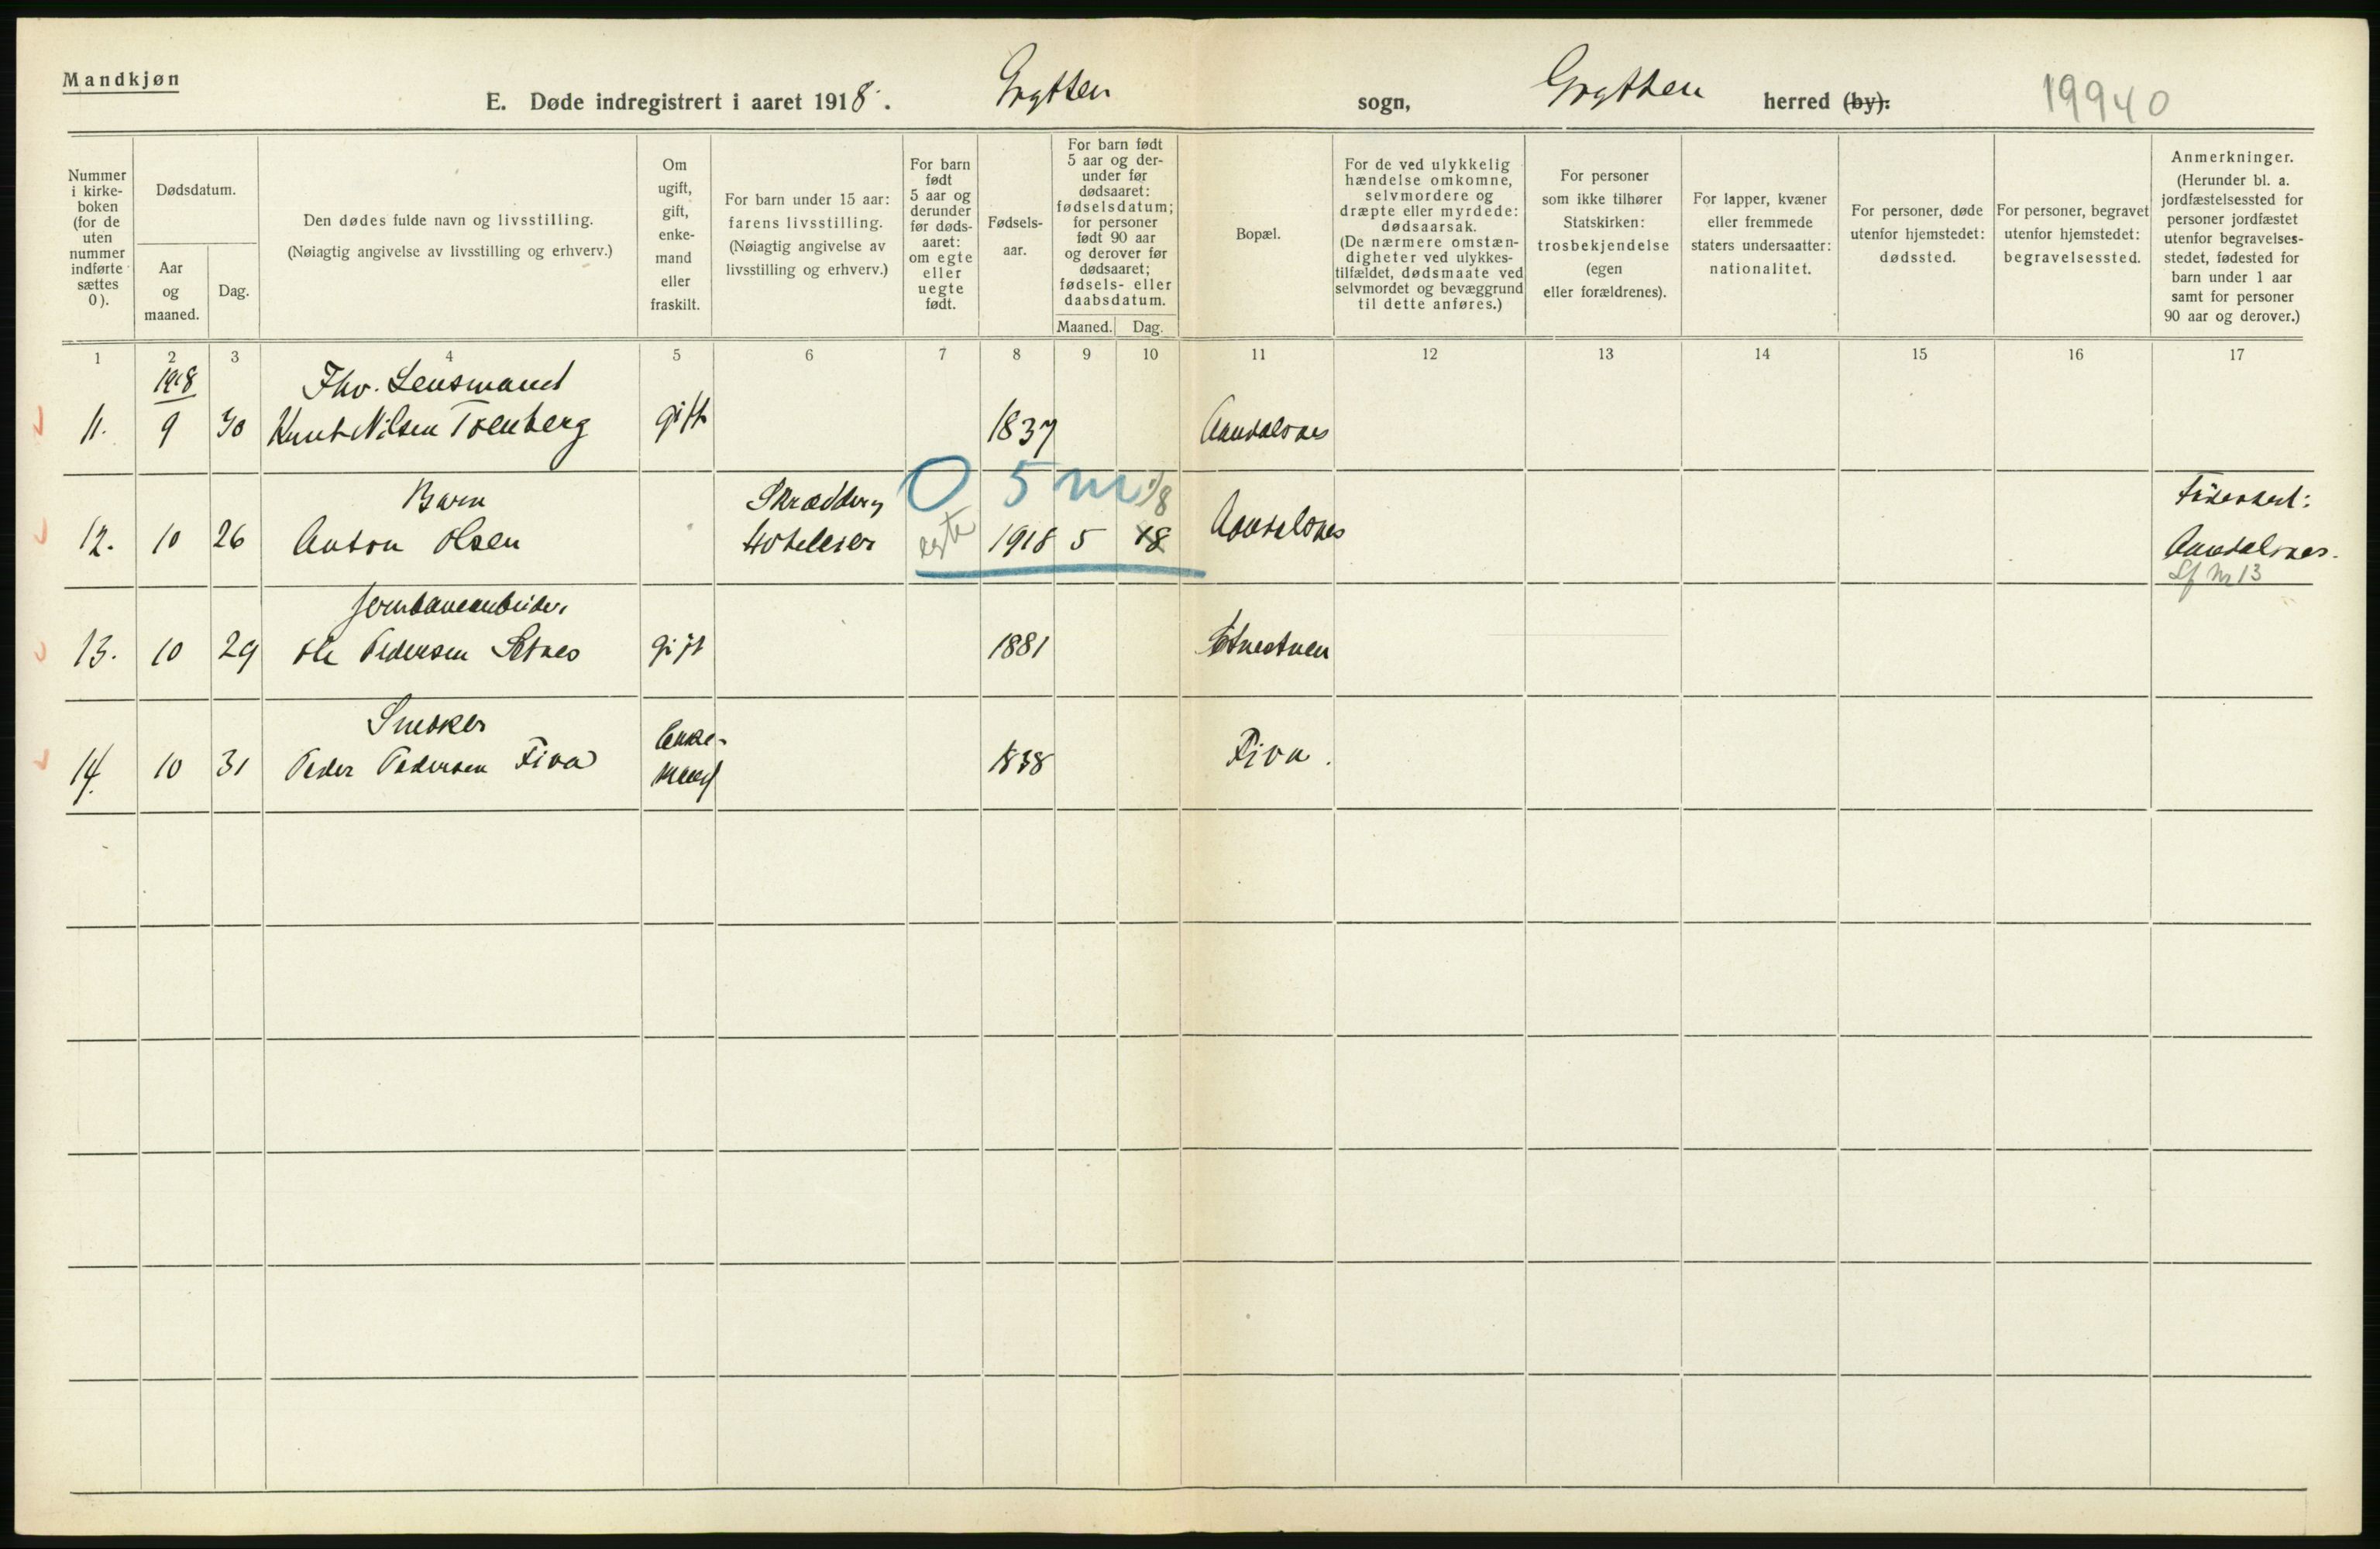 Mandkjøn
E. Døde indregistrert i aaret 1918. Grytten sogn, Grytten herred (by). 19940
Nummer i kirke- boken (for de uten nummer indførte sættes 0).
Dødsdatum.
Aar og maaned.
Dag.
Den dødes fulde navn og livsstilling.
(Nøiagtig angivelse av livsstilling og erhverv.)
Om ugift, gift, enke- mand eller fraskilt.
For barn under 15 aar: farens livsstilling.
(Nøiagtig angivelse av livsstilling og erhverv.)
For barn født 5 aar og derunder før døds- aaret: om egte eller uegte født.
Fødsels- aar.
For barn født 5 aar og der- under før dødsaaret: fødselsdatum; for personer født 90 aar og derover før dødsaaret; fødsels- eller daabsdatum.
Maaned. Dag.
Bopæl.
For de ved ulykkelig hændelse omkomne, selvmordere og dræpte eller myrdede: dødsaarsak.
(De nærmere omstæn- digheter ved ulykkes- tilfældet, dødsmaate ved selvmordet og bevæggrund til dette anføres.)
For personer som ikke tilhører Statskirken: trosbekjendelse (egen eller forældrenes).
For lapper, kvæner eller fremmede staters undersaatter: nationalitet.
For personer, døde utenfor hjemstedet: dødssted.
For personer, begravet utenfor hjemstedet: begravelsessted.
Anmerkninger.
(Herunder bl. a. jordfæstelsessted for personer jordfæstet utenfor begravelses- stedet, fødested for barn under 1 aar samt for personer 90 aar og derover.)
1 2 3 4 5 6 7 8 9 10 11 12 13 14 15 16 17
1918 Fhv. Lensmand
11. 9 30 Knut Nilsen Toenberg gift 1837 Aandalsnes
Barn Skrædder 0 5 m 1/8 Fødested:
12. 10 26 Anton Olsen Hoteleier egte 1918 5 18 Aandalsnes Aandalsnes.
Lf Nr 13
Jernbanearbeider
13. 10 29 Ole Pedersen Setnes gift 1881
Snekker Enke-
14. 10 31 Peder Pedersen Fiva mand 1838 Fiva.